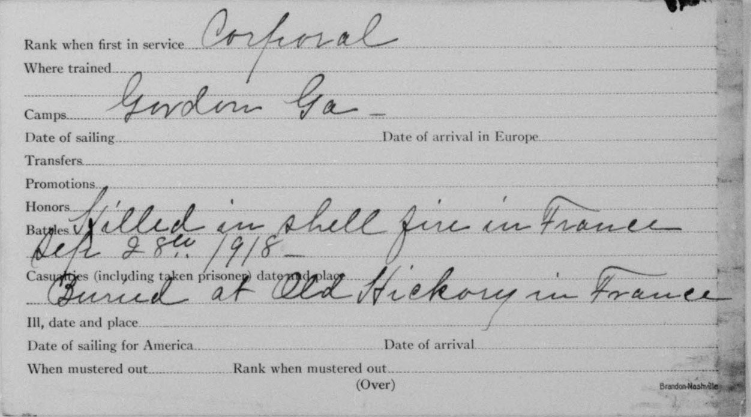 Rank when first in service Corporal
Where trained
Camps Gordon Ga -
Date of sailing Date of arrival in Europe
Transfers
Promotions
Honors
Battles Killed in shell fire in France
Sep 28th 1918 -
Casualties (including taken prisoner) date and place
Buried at Old Hickory in France
Ill, date and place
Date of sailing for America Date of arrival
When mustered out Rank when mustered out
(Over)
Brandon-Nashville